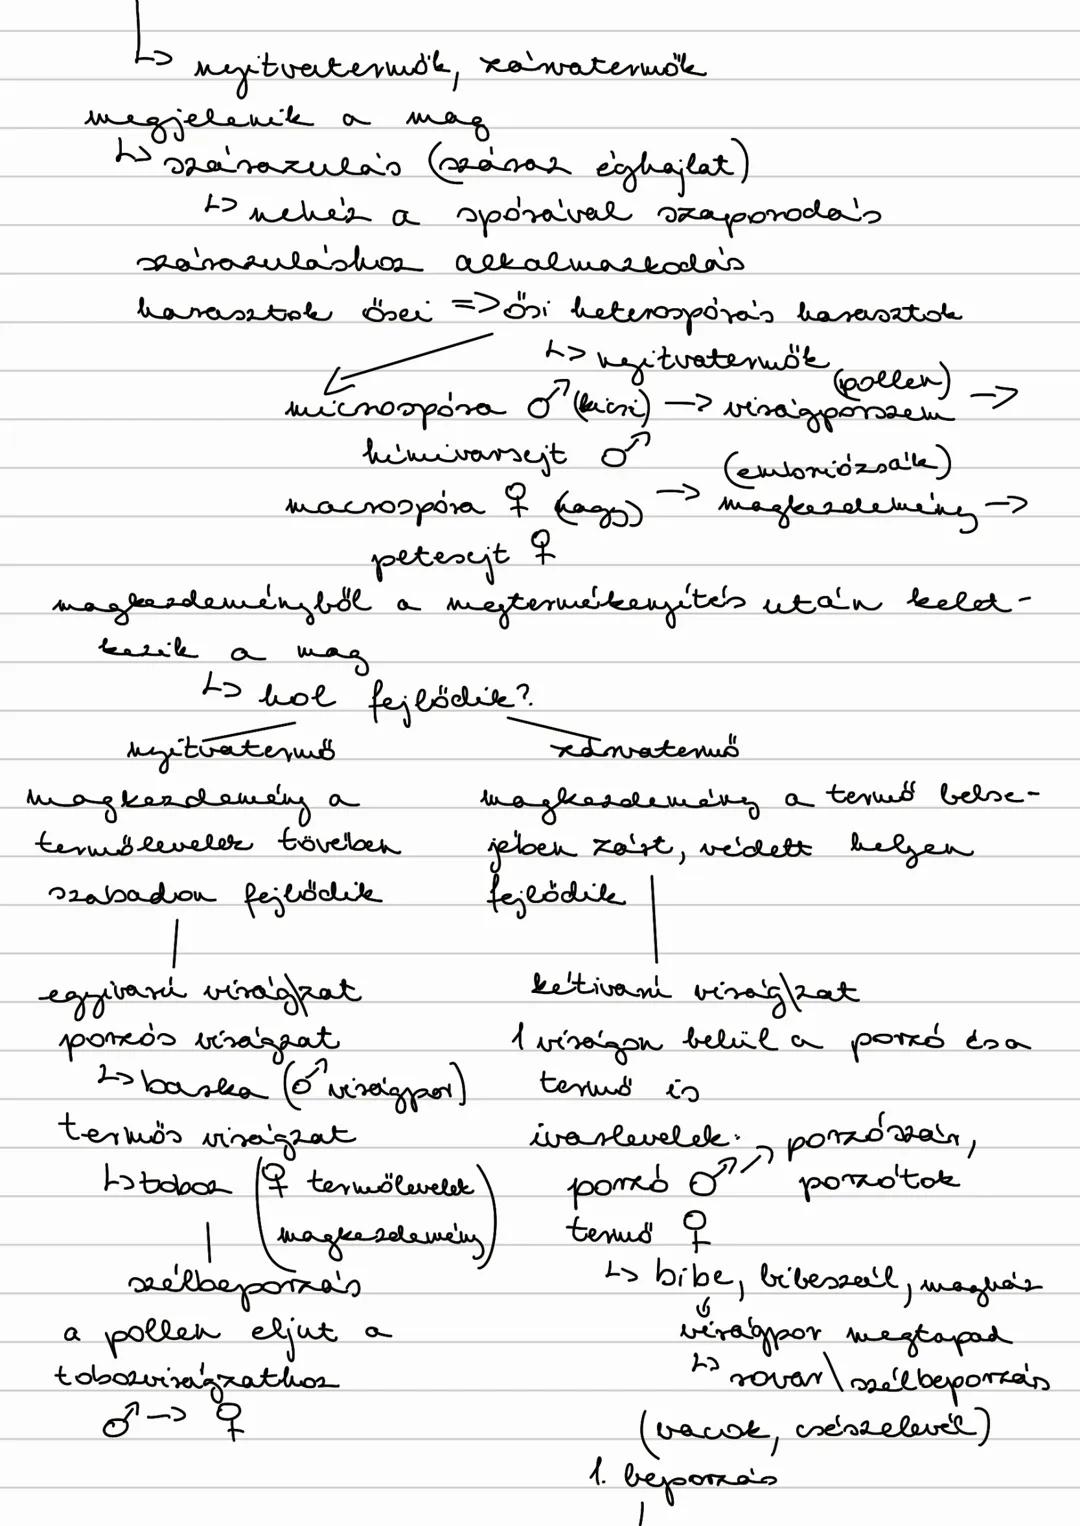 ↳ nyitvatermők, zárvatermők
megjelenik a mag
↳ szárazulás (száraz éghajlat)
↳ nehéz a spórával szaporodás
szárazuláshoz alkalmazkodás
harasztok ősei => ősi heterospórás harasztok
↳ nyitvatermők
microspóra ♂ (kicsi) → virágporszem (pollen) →
hímivarsejt ♂
macrospóra ♀ (nagy) → magkezdemény (embriózsák) →
petesejt ♀
magkezdeményből a megtermékenyítés után kelet-
kezik a mag
↳ hol fejlődik?
nyitvatermő
magkezdemény a
termőlevelek tövében
szabadon fejlődik
egyivarú virág/zat
porzós virágzat
↳ barka (♂ virágpor)
termős virágzat
↳ toboz (♀ termőlevelek
magkezdemény)
szélbeporzás
a pollen eljut a
tobozvirágzathoz
♂ → ♀
zárvatermő
magkezdemény a termő belse-
jében zárt, védett helyen
fejlődik
kétivarú virág\zat
1 virágon belül a porzó és a
termő is
ivarlevelek:
porzó ♂ → porzószár,
porzótok
termő ♀
↳ bibe, bibeszál, magház
↓
virágpor megtapad
↳ rovar\szélbeporzás
(vacok, csészelevél)
1. beporzás